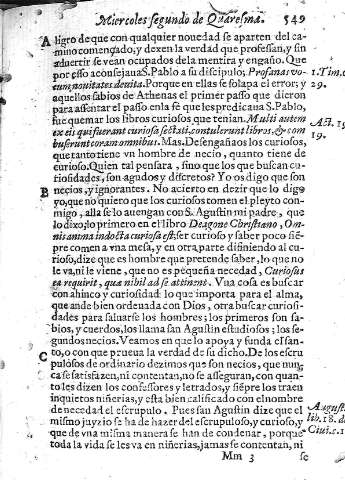 Miercoles segundo de Quaresma. 549
A ligro de que con qualquier nouedad se aparten del ca-
mino començado, y dexen la verdad que professan, y sin
aduertir se vean ocupados de la mentira y engaño. Que
por esso aconsejaua S. Pablo a su discipulo, Profanas vo-
cum nouitates deuita. Porque en ellas se solapa el error; y
aquellos sabios de Athenas el primer passo que dieron
para assentar el passo en la fe que les predicaua S. Pablo,
fue quemar los libros curiosos que tenian. Multi autem
ex eis qui fuerant curiosa sectati, contulerunt libros, & com
busserunt coram omnibus. Mas. Desengañaos los curiosos,
que tanto tiene vn hombre de necio, quanto tiene de
curioso. Quien tal pensara, sino que los que buscan cu-
riosidades, son agudos y discretos? Yo os digo que son
B necios, y ignorantes. No acierto en dezir que lo digo
yo, que no quiero que los curiosos tomen el pleyto con-
migo, alla se lo auengan con S. Agustin mi padre, que
lo dixo; lo primero en el libro Deagone Christiano, Om-
nis anima indocta curiosa est; ser curioso y saber poco siẽ-
pre comen a vna mesa, y en otra parte difiniendo al cu-
rioso, dize que es hombre que pretende saber, lo que no
le va, ni le viene, que no es pequeña necedad, Curiosus
ea requirit, quæ nihil ad se attinent. Vna cosa es buscar
con ahinco y curiosidad lo que importa para el alma,
que ande bien ordenada con Dios, otra buscar curiosi-
dades para saluarse los hombres; los primeros son sa-
bios, y cuerdos, los llama san Agustin estudiosos; los se-
gundos necios. Veamos en que lo apoya y funda el san-
to, o con que prueua la verdad de su dicho. De los escru-
C pulosos de ordinario dezimos que son necios, que nun-
ca se satisfazen, ni contentan, no se asseguran, con quan-
to les dizen los confessores y letrados, y siẽpre los traen
inquietos niñerias, y esta bien calificado con el nombre
de necedad el escrupulo. Pues san Agustin dize que el
mismo juyzio se ha de hazer del escrupuloso, y curioso, y
que de vna misma manera se han de condenar, porque
toda la vida se les va en niñerias, jamas se contentan, ni
Mm 3 se
1. Tim.
29.
Act. 19
19.
August.
lib. 18. de
Ciui. c. 1